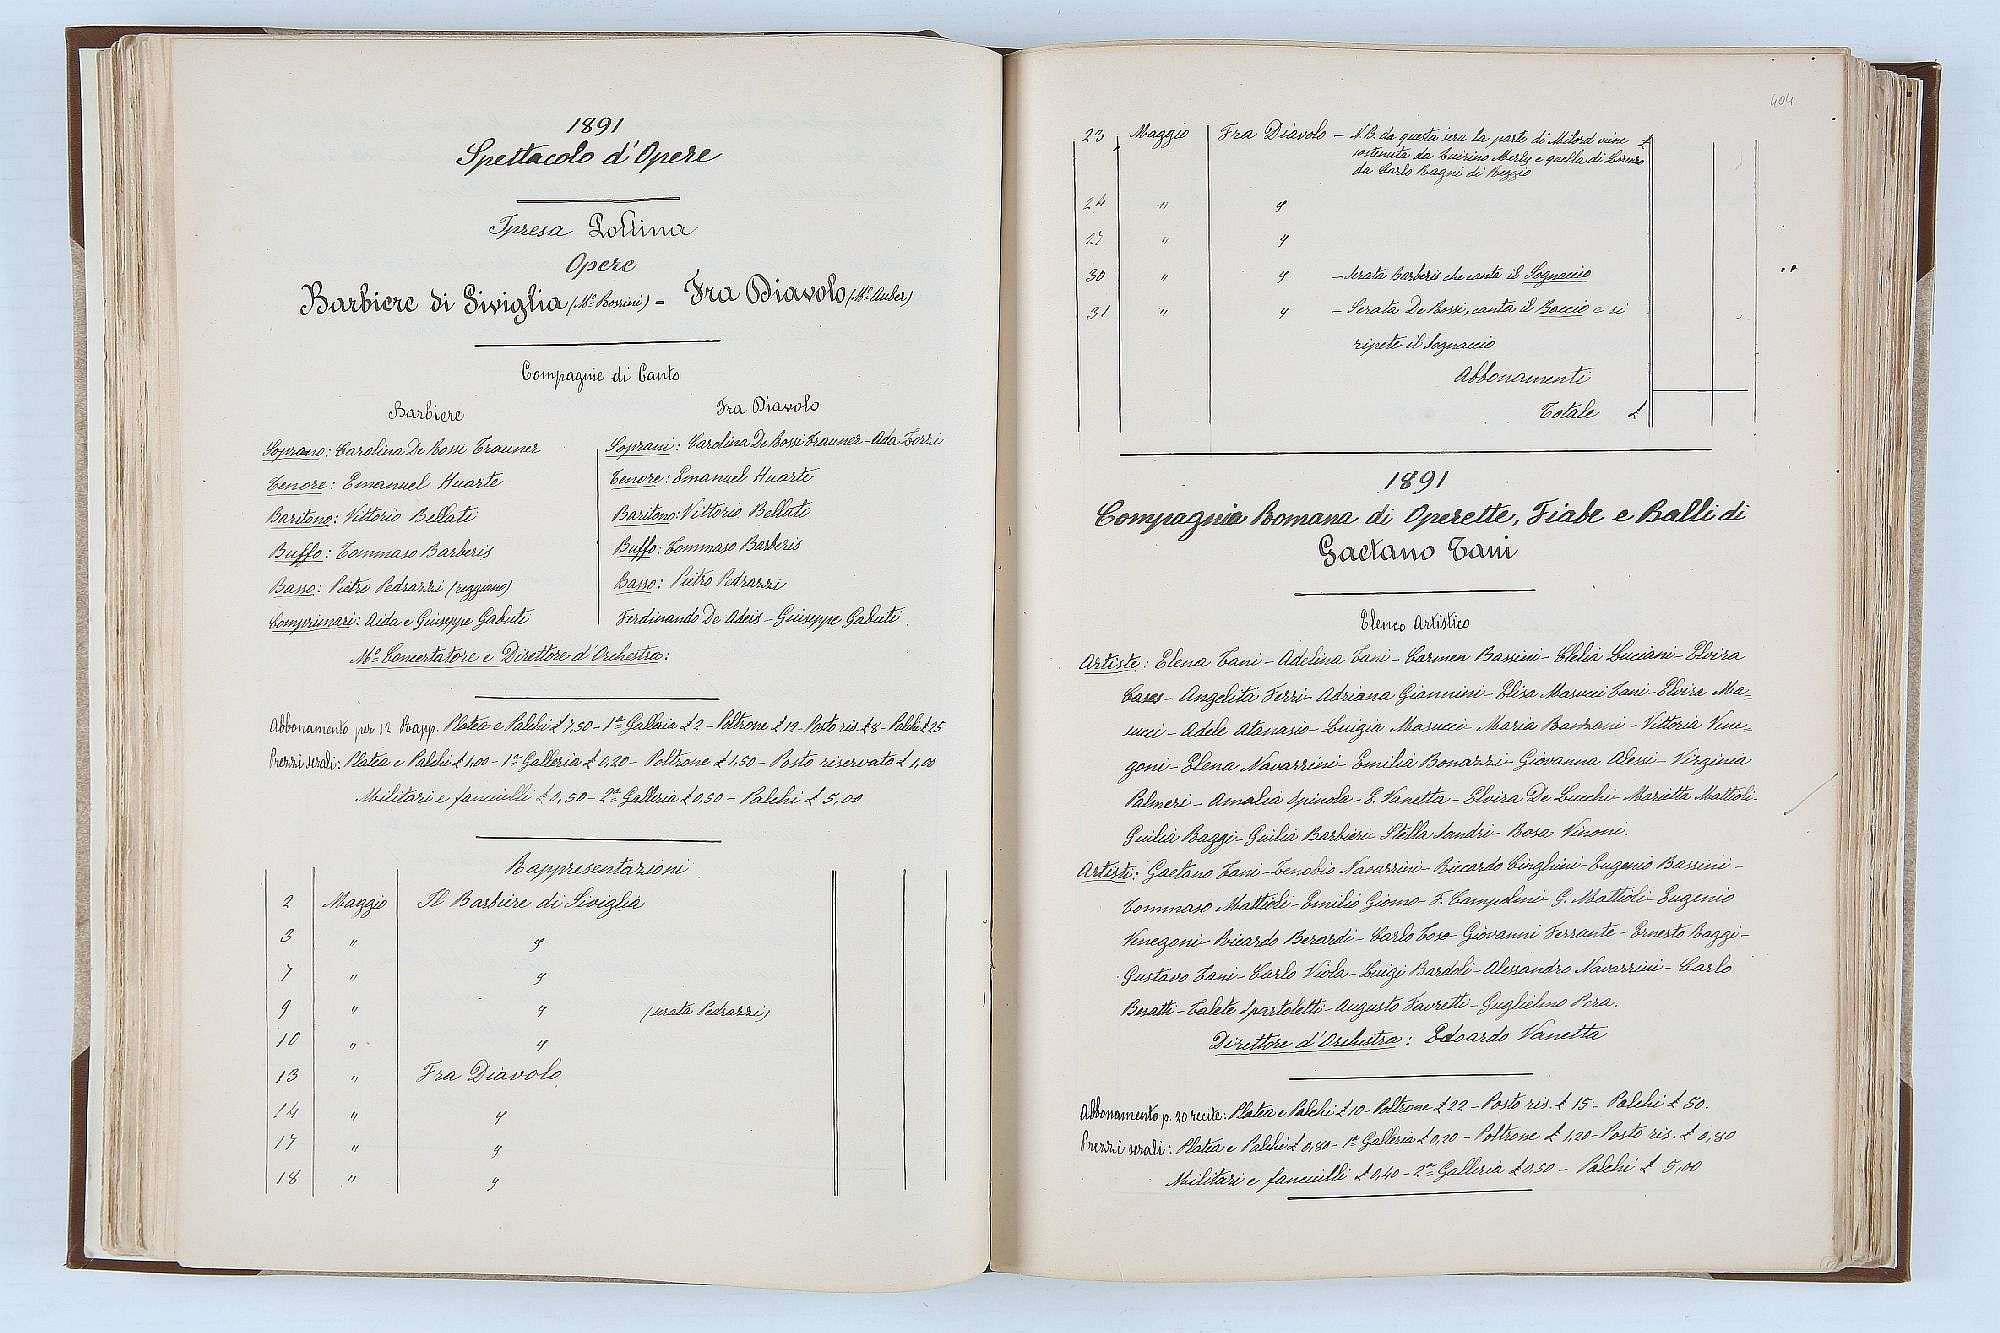 1891
Spettacolo d'Opere
Impresa
Opere
Barbiere di Siviglia (Mo. Rossini) - Fra Diavolo (Mo. Auber)
Compagnie di Canto
Barbiere
Soprano: Carolina De Rossi Trauner
Tenore: Emanuel Huarte
Baritono: Vittorio Bellati
Buffo: Tommaso Barberis
Basso: Pietro Pedrazzi (reggiano)
Comprimari: Aida e Giuseppe Gabuti
Fra Diavolo
Soprani: Carolina De Rossi Trauner - Aida Terzi
Tenore: Emanuel Huarte
Baritono: Vittorio Bellati
Buffo: Tommaso Barberis
Basso: Pietro Pedrazzi
Ferdinando De Adeis - Giuseppe Gabuti.
Mo. Concertatore e Direttore d'Orchestra:
Abbonamento per 12 Rapp. Platea e Palchi £ 7,50 - 1a Galleria £ 2 - Poltrone £ 12 - Posto ris. £ 8 - Palchi £ 25
Prezzi serali: Platea e Palchi £ 1,00 - 1a Galleria £ 0,20 - Poltrone £ 1,50 - Posto riservato £ 1,00
Militari e fanciulli £ 0,50 - 2a Galleria £ 0,50 - Palchi £ 5,00
Rappresentazioni
2 Maggio Il Barbiere di Siviglia
3 " "
7 " "
9 " " (serata Pedrazzi)
10 " "
13 " Fra Diavolo
14 " "
17 " "
18 " "
404
23 Maggio Fra Diavolo - N.B. da questa sera la parte di Milord viene £
sostenuta da Quirino Merly e quella di Lorenzo
da Carlo Ragni di Reggio
24 " "
27 " "
30 " " - Serata Barberis che canta il Sognaccio
31 " " - Serata De Rossi, canta il Baccio e si
ripete il Sognaccio
Abbonamenti
Totale £
1891
Compagnia Romana di Operette, Fiabe e Balli di
Gaetano Tani
Elenco Artistico
Artiste: Elena Tani - Adelina Tani - Carmen Bassini - Clelia Luciani - Elvira
Cases - Angelita Ferri - Adriana Giannini - Elisa Masucci Tani - Elvira Ma-
succi - Adele Atanasio - Luigia Masucci - Maria Banzani - Vittoria Vene-
goni - Elena Navarrini - Emilia Bonazzi - Giovanna Alessi - Virginia
Palmeri - Amalia Spinola - E. Vanetta - Elvira De Lucchi - Marietta Mattioli -
Giulia Raggi - Giulia Barbieri - Stella Sandri - Rosa Vinoni.
Artisti: Gaetano Tani - Zenobio Navarrini - Riccardo Cinghini - Eugenio Bassini -
Tommaso Mattioli - Emilio Giomo - F. Campolini - G. Mattioli - Eugenio
Venegoni - Ricardo Berardi - Carlo Toso - Giovanni Ferrante - Ernesto Raggi -
Gustavo Tani - Carlo Viola - Luigi Bardoli - Alessandro Navarrini - Carlo
Beratti - Talete Spartoletti - Augusto Favretti - Guglielmo Pera.
Direttore d'Orchestra: Edoardo Vanetta
Abbonamento p. 20 recite: Platea e Palchi £ 10 - Poltrone £ 22 - Posto ris. £ 15 - Palchi £ 50.
Prezzi serali: Platea e Palchi £ 0,80 - 1a Galleria £ 0,20 - Poltrone £ 1,20 - Posto ris. £ 0,80
Militari e fanciulli £ 0,40 - 2a Galleria £ 0,50 - Palchi £ 5,00